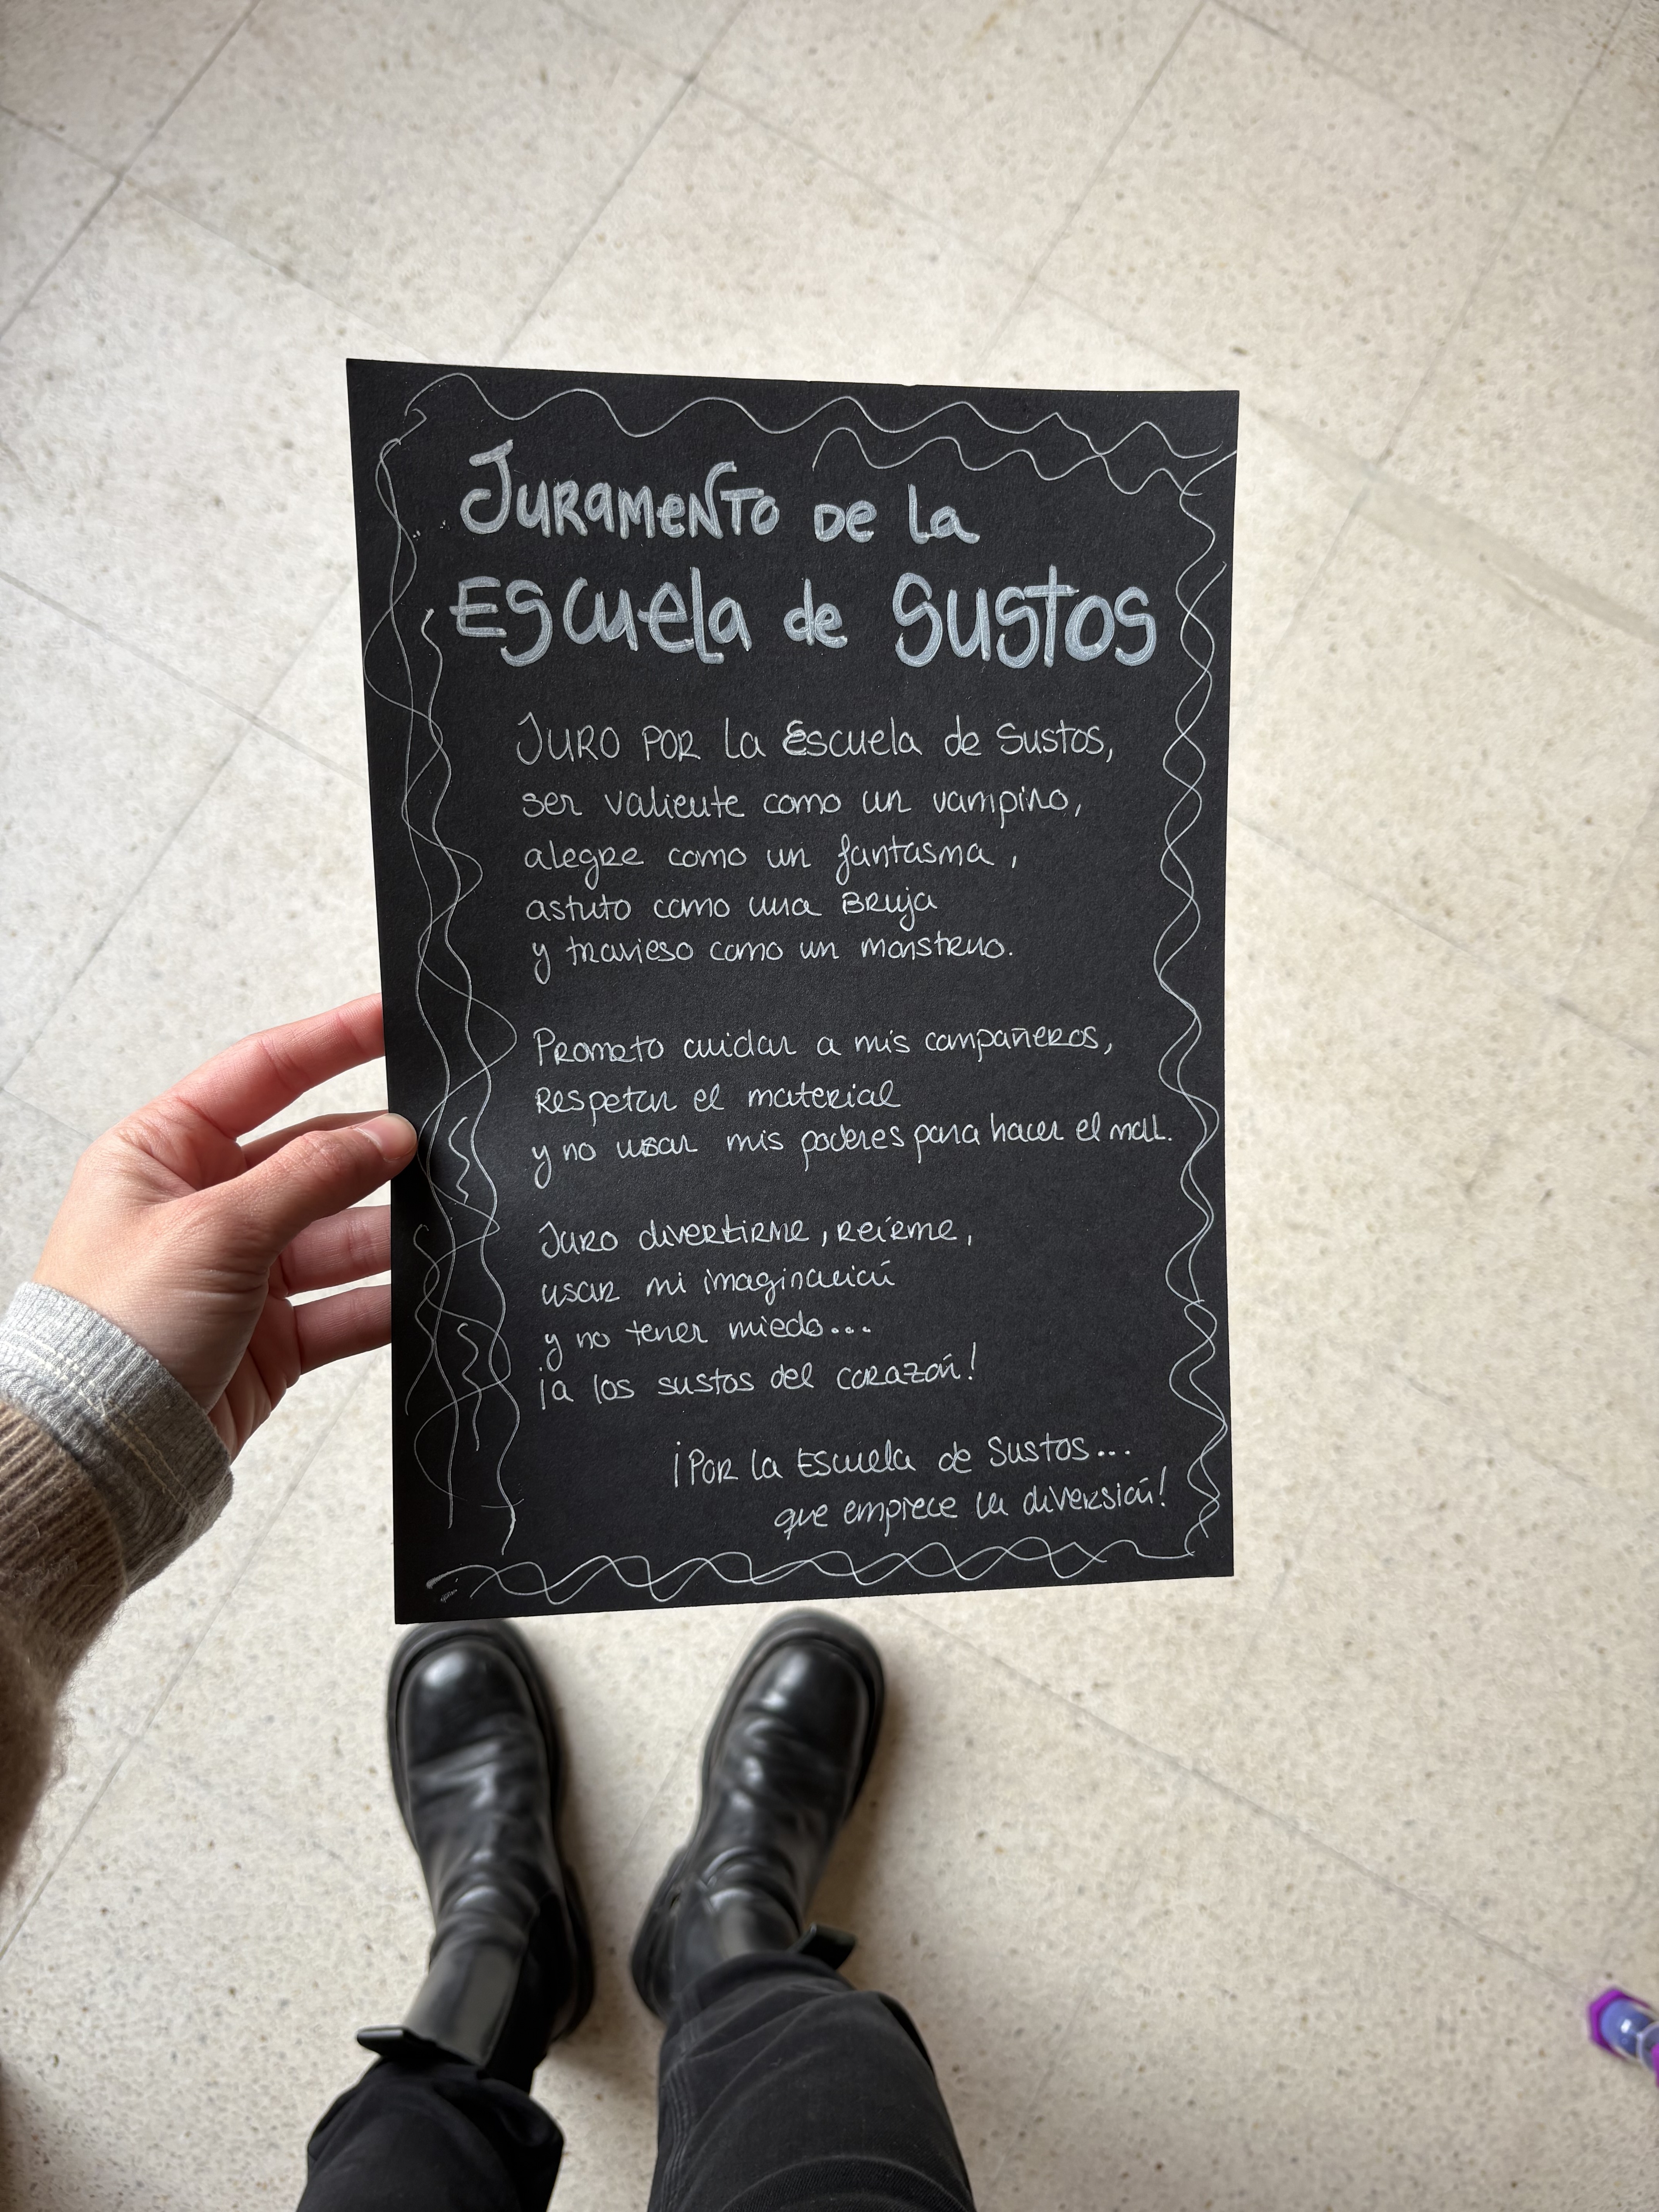 Juramento de la
Escuela de Sustos
Juro por la Escuela de Sustos,
ser valiente como un vampiro,
alegre como un fantasma,
astuto como una Bruja
y travieso como un monstruo.
Prometo cuidar a mis compañeros,
Respetar el material
y no usar mis poderes para hacer el mal.
Juro divertirme, reírme,
usar mi imaginación
y no tener miedo...
¡a los sustos del corazón!
¡Por la Escuela de Sustos...
que empiece la diversión!